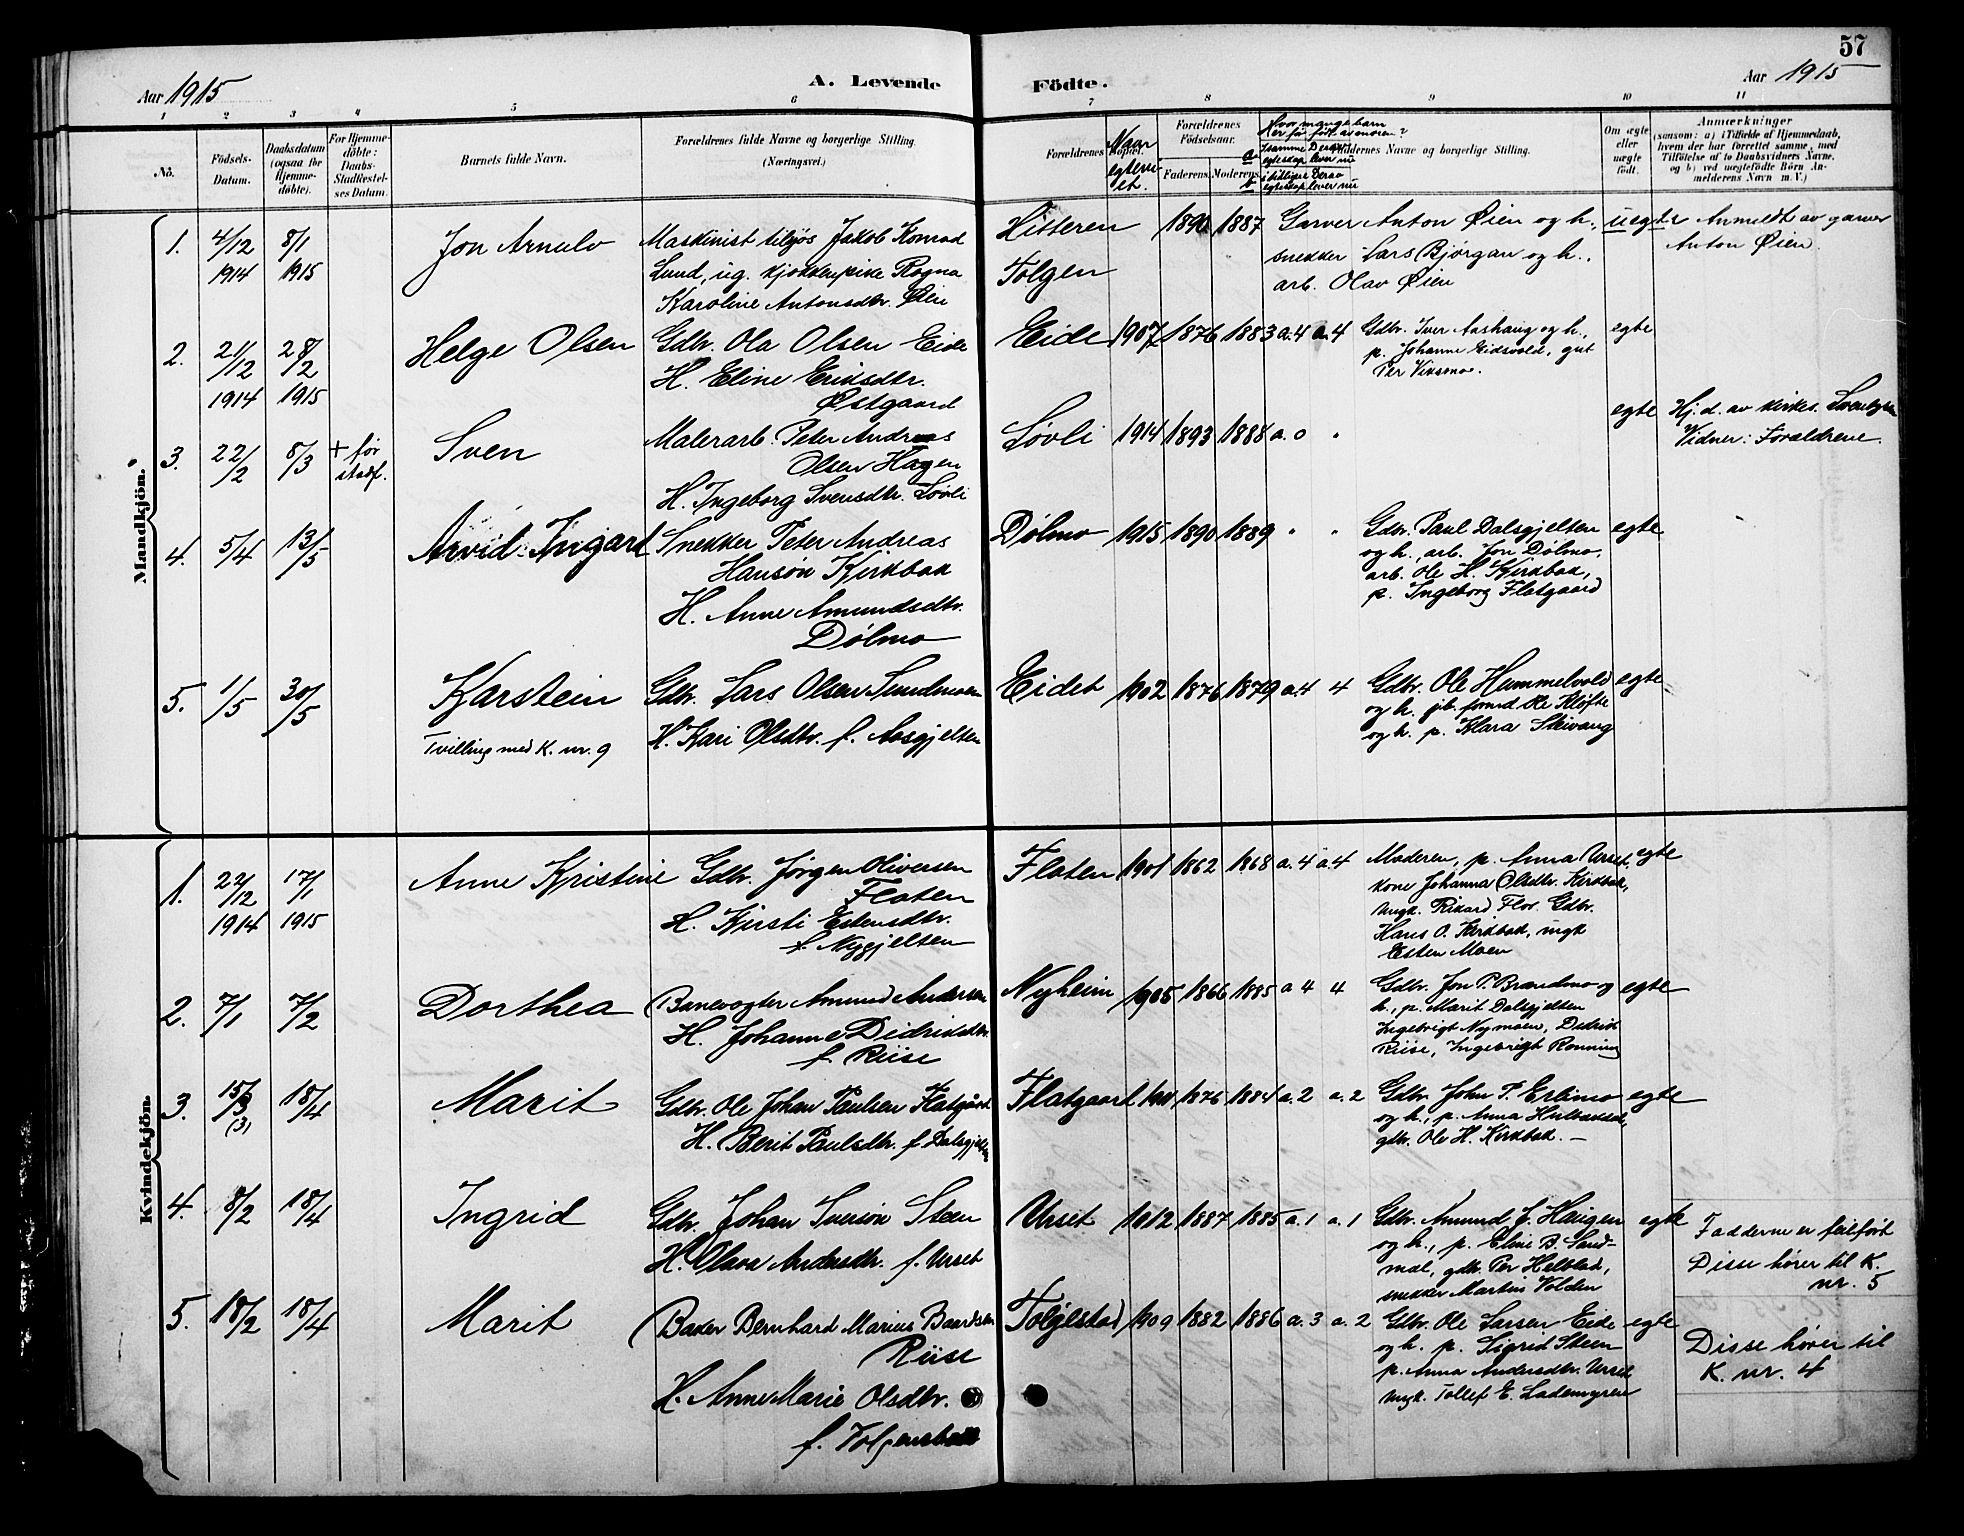 57
Aar 1915
A. Levende
Födte.
Aar 1915
1 2 3 4 5 6 7 8 9 10 11
No.
Födsels-
Datum.
Daabsdatum
(ogsaa for
Hjemme-
döbte).
For Hjemme-
döbte:
Daabs-
Stadfæstel-
ses Datum.
Barnets fulde Navn.
Forældrenes fulde Navne og borgerlige Stilling.
(Næringsvei.)
Forældrenes Bopæl.
Naar
egtevi-
et.
Forældrenes
Födselsaar.
Faderens.
Moderens.
Hvor mange barn
Her før født av moren?
a
I samme
egteskap lever nu
b
i tidligere
egteskap lever nu
Faddernes Navne og borgerlige Stilling.
Om ægte
eller
uægte
födt.
Anmærkninger
(saasom: a) i Tilfælde af Hjemmedaab,
hvem der har forrettet samme, med
Tilföielse af to Daabsvidners Navne,
og b) ved uægtefödte Börn An-
melderens Navn m. V.)
Mandkjön.
1.
4/12
1914
8/1
1915
Jon Arnulv
Maskinist Jakob Konrad
Lund, ug. kjøkkenpike Ragna
Karoline Antonsdtr. Øien
Hitteren
Tolgen
1890 1887
Garver Anton Øien og h.,
snekker Lars Bjørgan og h.,
arb. Olav Øien
uegte
Anmeldt av garver
Anton Øien.
2.
21/12
1914
28/2
1915
Helge Olsen
Gdbr. Ola Olsen Eide
H. Eline Eriksdtr.
Østgaard
Eide
1907 1876 1883 a. 4 a. 4
Gdbr. Iver Aashaug og h.,
p. Johanne Eidsvold, gut
Per Viksmo.
egte
3.
22/2
8/3
+ før
stadf.
Sven
Malerarb. Peter Andreas
Olsen Hagen
H. Ingeborg Svensdtr. Løvli
Løvli
1914 1893 1888 a. 0 "
egte
Hj. d. av kirkes.
Vidner: Forældrene.
4.
5/4
13/5
Arvid Ingart
Snekker Peter Andreas
Hansøn Kirkbak
H. Anne Amundsdtr.
Dølmo
Dølmo
1915 1890 1889 " "
Gdbr. Paul Dalsgjelten
og h., arb. Jon Dølmo,
arb. Ole H. Kirkbak,
p. Ingeborg Flatgaard
egte
5.
1/5
30/5
Karstein
Tvilling med K. nr. 9
Gdbr. Lars Olsen Sundmoen
H. Kari Olsdtr. f. Aasgjelten
Eidet
1902 1876 1879 a. 4 4
Gdbr. Ole Hummelvold
og h. jb. formd Ole Kløfte
og h. p. Klara Skivang
egte
Kvindekjön.
1.
22/12
1914
17/1
1915
Anne Kristine
Gdbr. Jørgen Oliversen
Flaten
H. Kirsti Estensdtr.
f. Nygjelten
Flaten
1901 1862 1868 a. 4 a 4
Moderen, p. Anna Urset,
kone Johanna Olsdtr. Kirkbak,
ungk. Rikard Flor. Gdbr.
Hans O. Kirkbak, ungk
Esten Moen
egte
2.
7/1
7/2
Dorthea
Banevogter Amund Andersen
H. Johanne Didriksdtr.
f. Riise
Nyheim
1905 1866 1885 a 4 4
Gdbr. Jon P. Brandmo og
h., p. Marit Dalsgjelten
Ingebrigt Nymoen, Didrik
Riise, Ingebrigt Rønning
egte
3.
15/3
(3)
18/4
Marit
Gdbr. Ole Johan Paulsen Flatgård
H. Berit Paulsdtr. f. Dalsgjelten
Flatgaard
1876 1884 a. 2 a. 2
Gdbr. John T. Erlimo
og h., p. Anna
gdbr. Ole H. Kirkbak. —
egte
4.
8/2
18/4
Ingrid
Gdbr. Johan Iversøn Steen
H. Olava Andersdtr. f. Urset
Urset
1912 1887 1885 a. 1 a. 1
Gdbr. Amund J. Haugen
og h., p. Eline B. Sand-
mæl, gdbr. Per Holbak,
snekker Martin Volden
egte
Fadderne er feilført
Disse hører til K.
nr. 5
5.
18/2
18/4
Marit
Baker Bernhard Marius Baardsen
Riise
H. Anne Marie Olsdtr.
f. Tolgensbak
Tolgestad
1909 1882 1886 a. 3 a. 2
Gdbr. Ole Larsen Eide
og h. p. Sigrid Steen
p. Anna Andersdtr. Urset
ungk. Tollef E. Lademyren
egte
Disse hører til
K. nr. 4